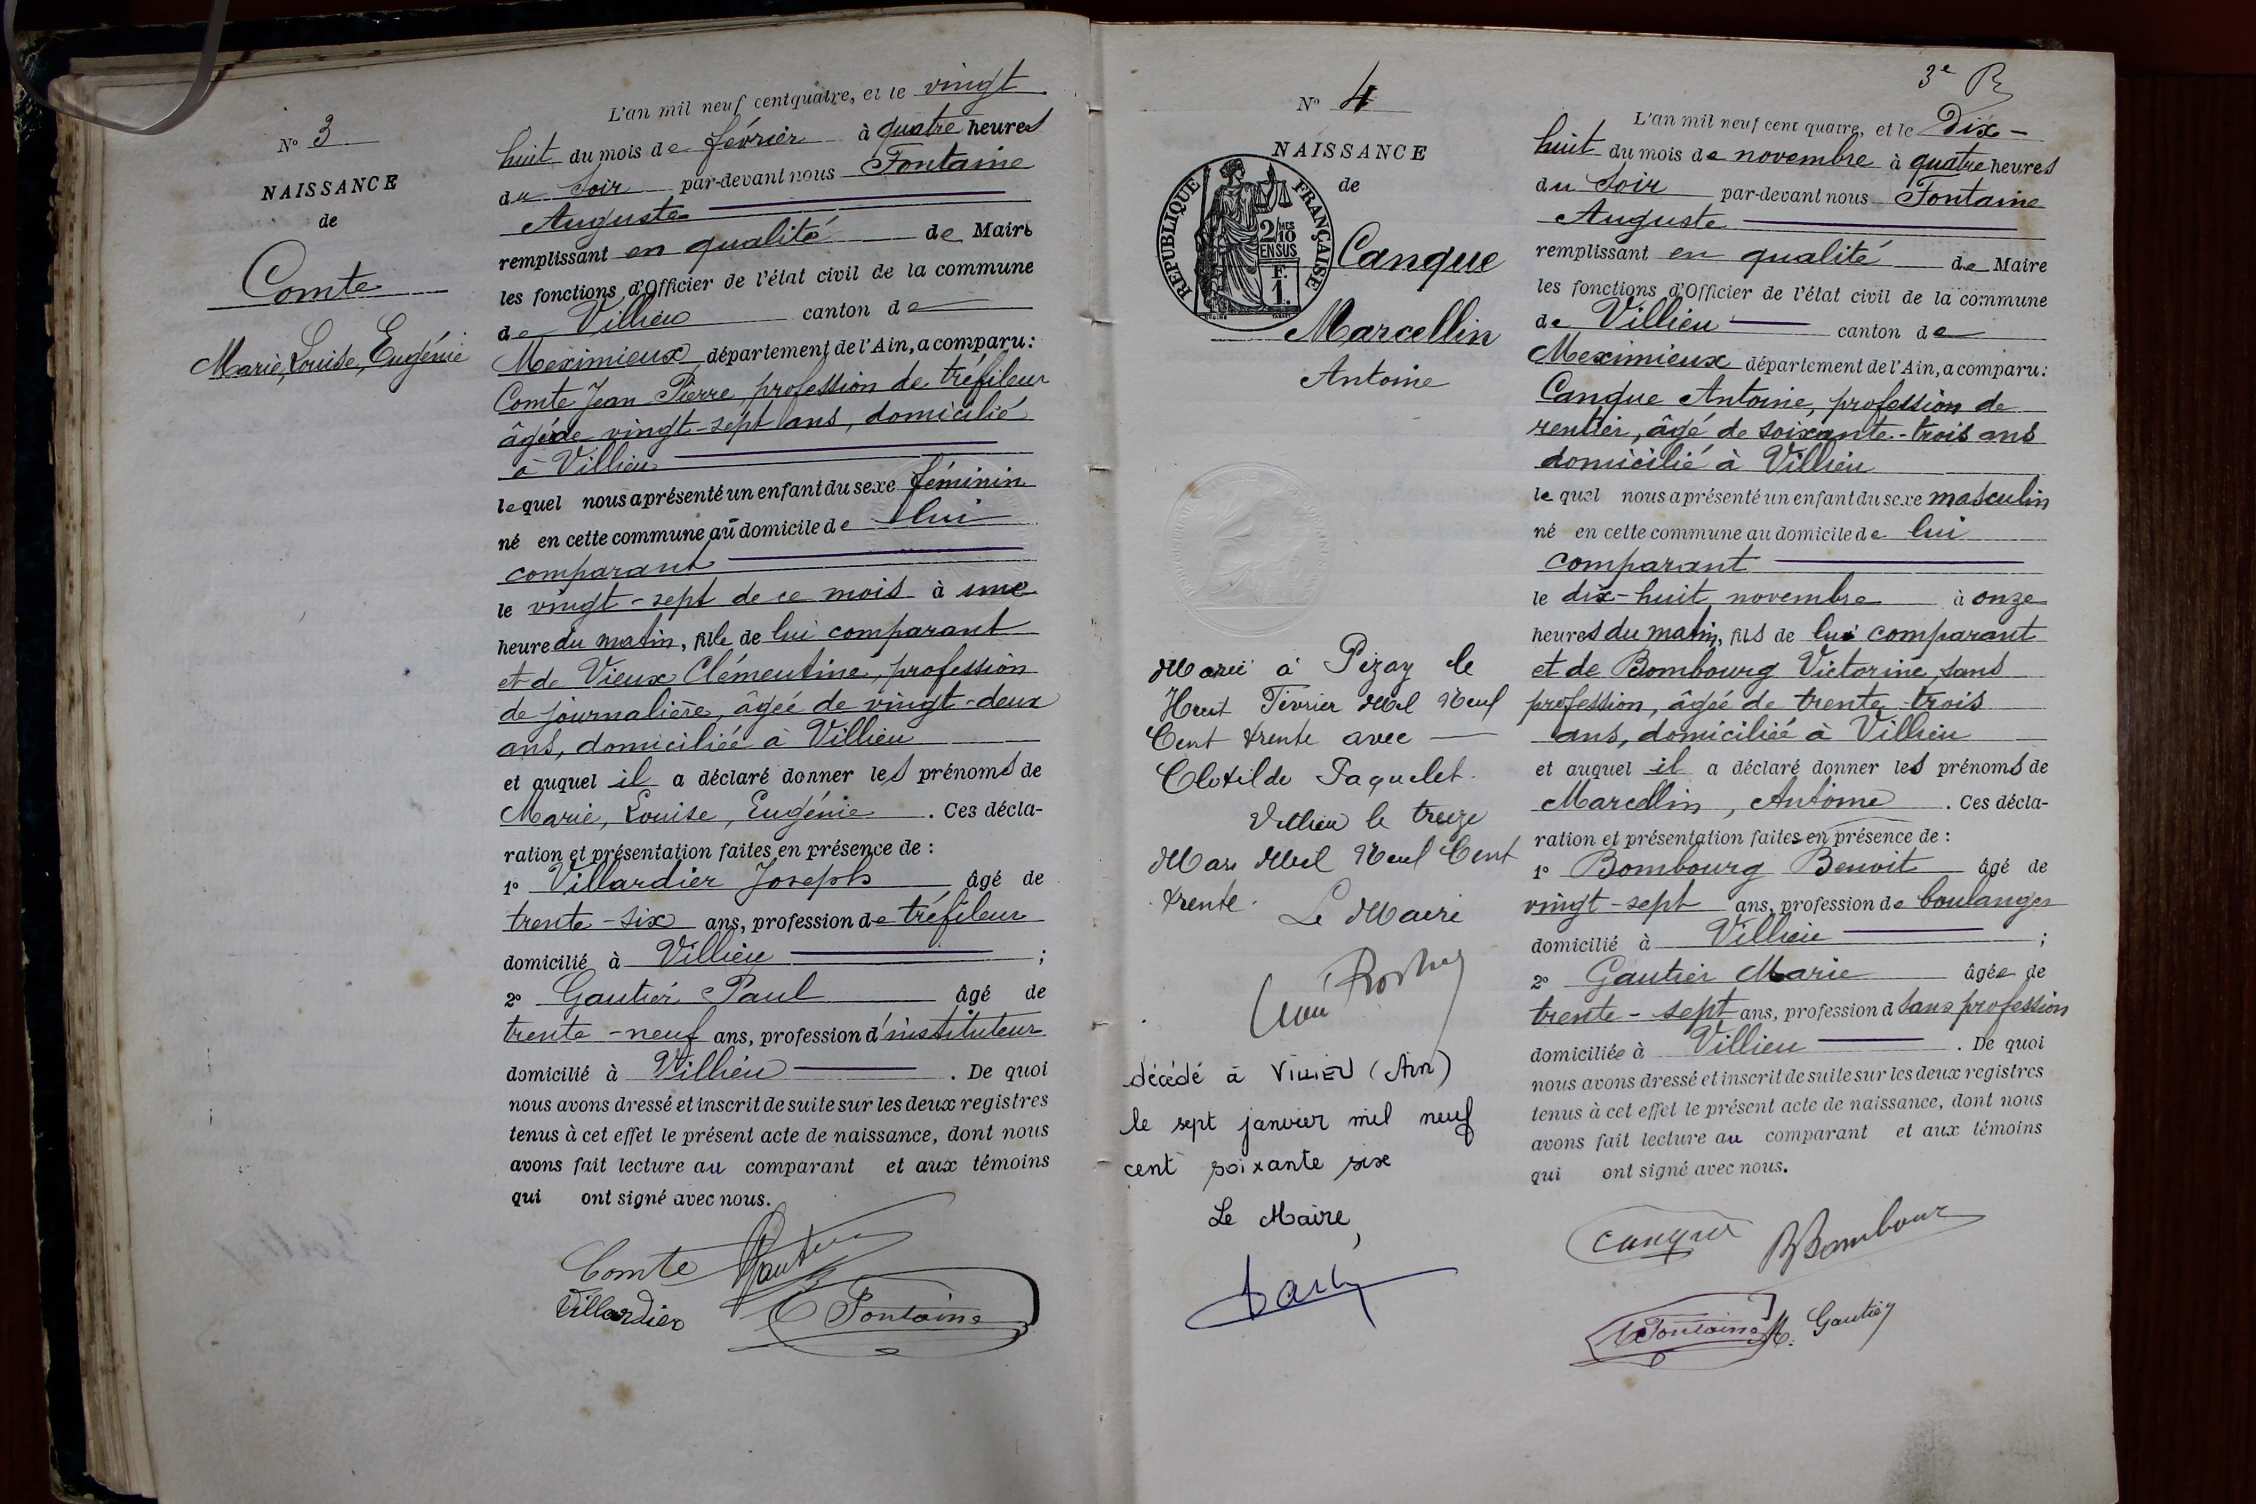 N° 3
NAISSANCE
de
Comte
Marie, Louise, Eugénie
L'an mil neuf cent quatre, et le vingt
huit du mois de février à quatre heures
du soir par-devant nous Fontaine
Auguste
remplissant en qualité de Maire
les fonctions d'Officier de l'état civil de la commune
de Villieu canton de
Meximieux département de l'Ain, a comparu:
Comte Jean Pierre, profession de tréfileur
âgé de vingt-sept ans, domicilié
à Villieu
lequel nous a présenté un enfant du sexe féminin
né en cette commune au domicile de lui
comparant
le vingt-sept de ce mois à une
heure du matin, fille de lui comparant
et de Vieux Clémentine, profession
de journalière, âgée de vingt-deux
ans, domiciliée à Villieu
et auquel il a déclaré donner les prénoms de
Marie, Louise, Eugénie. Ces décla-
ration et présentation faites en présence de :
1° Villardier Joseph âgé de
trente-six ans, profession de tréfileur
domicilié à Villieu ;
2° Gautier Paul âgé de
trente-neuf ans, profession d'instituteur
domicilié à Villieu. De quoi
nous avons dressé et inscrit de suite sur les deux registres
tenus à cet effet le présent acte de naissance, dont nous
avons fait lecture au comparant et aux témoins
qui ont signé avec nous.
Comte Gautier
Villardier Fontaine
3e
N° 4
NAISSANCE
de
RÉPUBLIQUE FRANÇAISE
2/10 MES
EN SUS
F.
1.
Canque
Marcellin
Antoine
Marié à Pizay le
Huit Février Mil Neuf
Cent trente avec
Clotilde Paquelet.
Villieu le treize
Mars Mil Neuf Cent
trente.
Le Maire
décédé à VILLIEU (Ain)
le sept janvier mil neuf
cent soixante six
Le Maire,
L'an mil neuf cent quatre, et le Dix-
huit du mois de novembre à quatre heures
du soir par-devant nous Fontaine
Auguste
remplissant en qualité de Maire
les fonctions d'Officier de l'état civil de la commune
de Villieu canton de
Meximieux département de l'Ain, a comparu:
Canque Antoine, profession de
rentier, âgé de soixante-trois ans
domicilié à Villieu
lequel nous a présenté un enfant du sexe masculin
né en cette commune au domicile de lui
comparant
le dix-huit novembre à onze
heures du matin, fils de lui comparant
et de Bombourg Victorine, sans
profession, âgée de trente-trois
ans, domiciliée à Villieu
et auquel il a déclaré donner les prénoms de
Marcellin, Antoine. Ces décla-
ration et présentation faites en présence de :
1° Bombourg Benoit âgé de
vingt-sept ans, profession de boulanger
domicilié à Villieu ;
2° Gautier Marie âgée de
trente-sept ans, profession d sans profession
domiciliée à Villieu. De quoi
nous avons dressé et inscrit de suite sur les deux registres
tenus à cet effet le présent acte de naissance, dont nous
avons fait lecture au comparant et aux témoins
qui ont signé avec nous.
Canque B Bombour
Fontaine M. Gautier